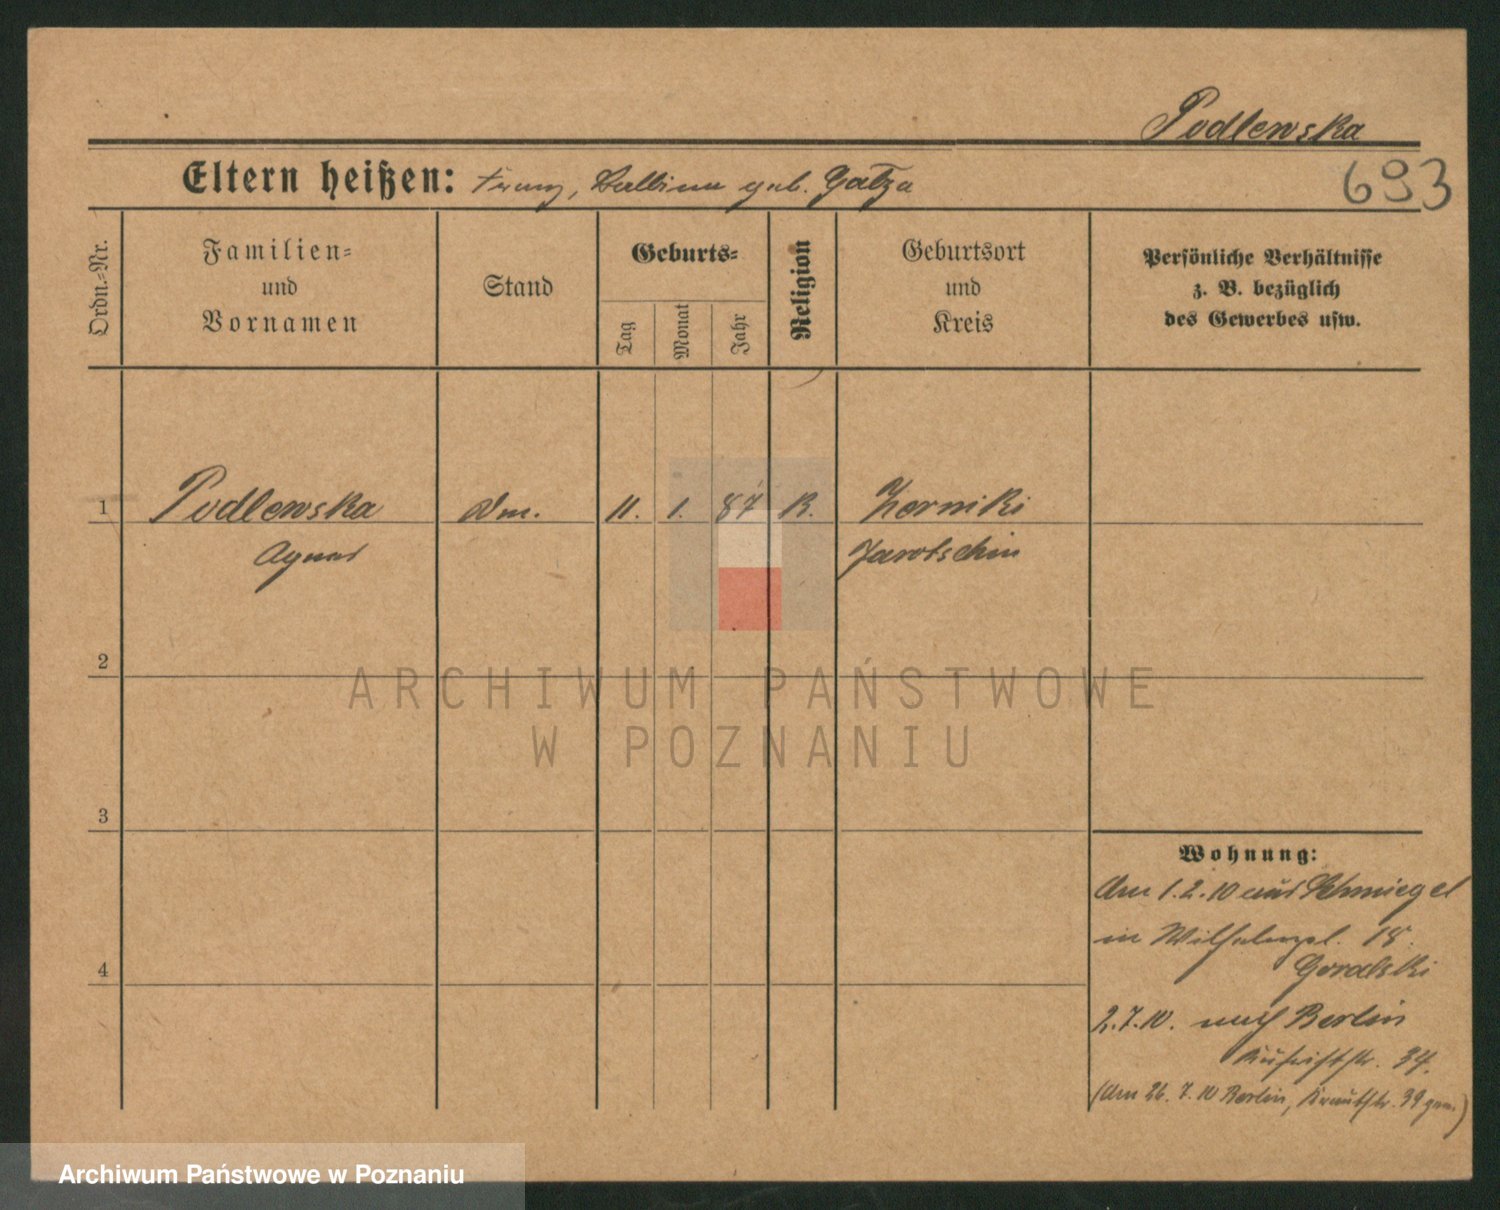 Podlewska
Eltern heißen: Franz, Balbina geb. Gatza
693
Ordn.=Nr.
Familien=
und
Vornamen
Stand
Geburts=
Tag
Monat
Jahr
Religion
Geburtsort
und
Kreis
Persönliche Verhältnisse
z. B. bezüglich
des Gewerbes usw.
1 Podlewska 11. 1. 87 K. Zerniki
Agnes Jarotschin
2
3
4
Wohnung:
Am 1.2.10 aus Schmiegel
in Wilhelmspl. 18.
Goralski
2.7.10. nach Berlin
34.
(Am 26.7.10 Berlin, Krautstr. 39 gem.)
ARCHIWUM PAŃSTWOWE
W POZNANIU
Archiwum Państwowe w Poznaniu